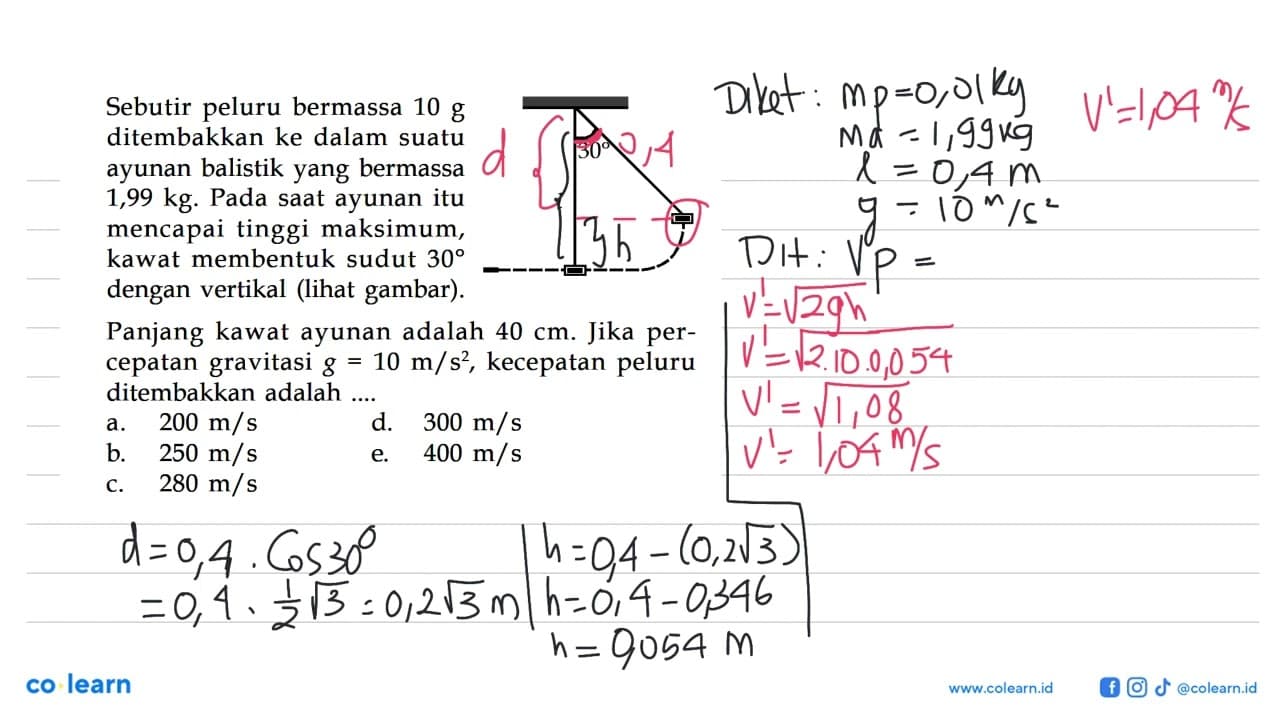 Sebutir peluru bermassa 10 g
ditembakkan ke dalam suatu
ayunan balistik yang bermassa
1,99 kg. Pada saat ayunan itu
mencapai tinggi maksimum,
kawat membentuk sudut 30°
dengan vertikal (lihat gambar).
Panjang kawat ayunan adalah 40 cm. Jika per-
cepatan gravitasi g = 10 m/s², kecepatan peluru
ditembakkan adalah ....
a. 200 m/s
b. 250 m/s
c. 280 m/s
d. 300 m/s
e. 400 m/s
30°
0,4
d
h
Diket: mp=0,01kg
Ma = 1,99kg
l = 0,4 m
g = 10 m/s²
Dit: Vp =
V'=√2gh
V'=√2.10.0,054
V' = √1,08
V'= 1,04 m/s
V'=1,04 m/s
d=0,4 . Cos30°
=0,4 . 1/2 √3 = 0,2√3 m
h=0,4-(0,2√3)
h=0,4-0,346
h=0,054 m
co learn
www.colearn.id
@colearn.id